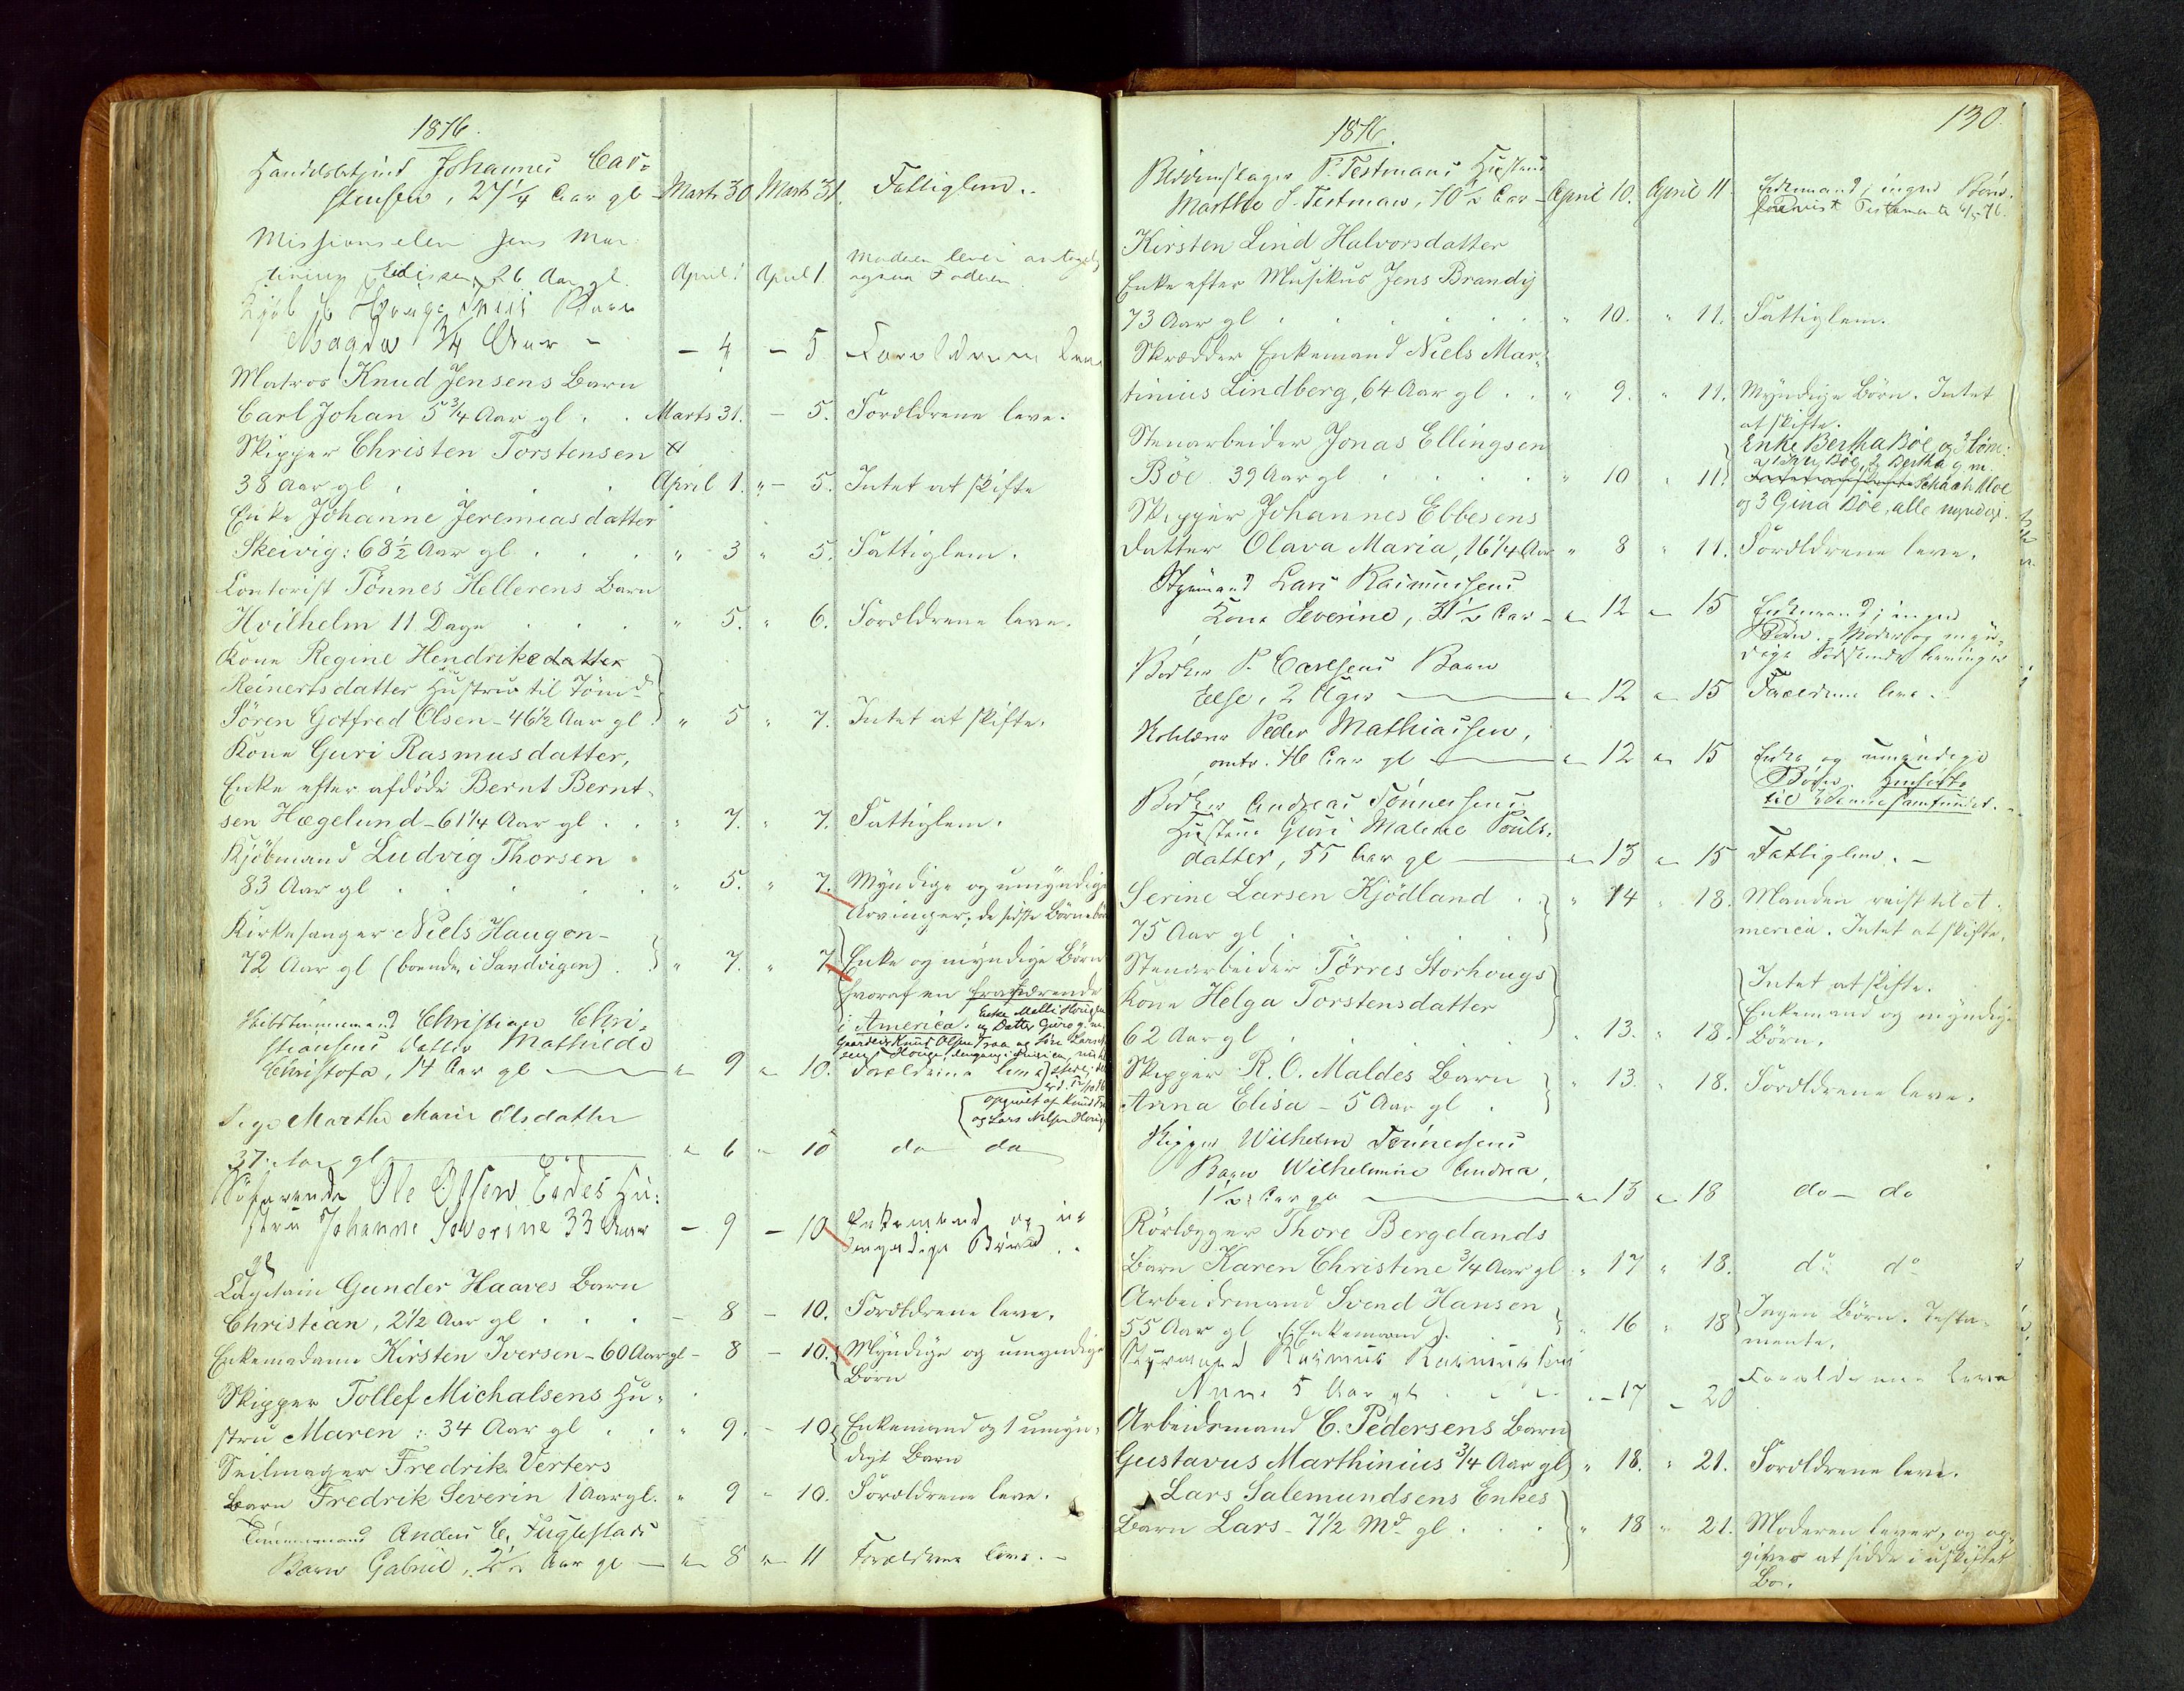 1876.
Handelsbetjent Johannes Car=
stensen, 27 1/4 Aar gl - Marts 30 Marts 31. Fattiglem.
Missionselev Jens Mar
tinius 26 Aar gl. April 1 April 1. Moderen lever antagelig
ogsaa Faderen
Barn
Magda 3/4 Aar - - 4 - 5 Forældrene leve
Matros Knud Jensens Barn
Carl Johan 5 3/4 Aar gl . . Marts 31. - 5. Forældrene leve.
Skipper Christen Torstensen
38 Aar gl . . . April 1. " - 5. Intet at skifte
Enke Johanne Jeremiasdatter
Skeivig: 68 1/2 Aar gl . . . " 3 " 5. Fattiglem.
Contorist Tönnes Hellerens Barn
Hvilhelm 11 Dage . . . " 5. " 6. Forældrene leve.
Kone Regine Hendrikedatter
Reinertsdatter Hustru til Tömd
Sören Gotfred Olsen - 46 1/2 Aar gl. " 5 " 7. Intet at skifte.
Kone Guri Rasmusdatter,
Enke efter afdöde Bernt Bernt-
sen Hægelund - 61 1/4 Aar gl . . " 7. " 7. Fattiglem.
Kjöbmand Ludvig Thorsen
83 Aar gl . . . . " 5. " 7. Myndige og umyndige
Arvinger, de sidste Börnebörn
Kirkesanger Niels Haugen-
72 Aar gl (boende i Sandvigen). " 7. " 7. Enke og myndige Börn
hvoraf en fraværende
i America. Enke Malli Hougen
og Datter Guro g. m.
Gaardbr. Knud Olsen Traa og Sön Lars
Skibstömmermand Christian Chri-
stiansens Datter Mathilde
Christofa, 14 Aar gl " 9 " 10. Forældrene leve
opgivet af Knud
og Lars Nilsen Houg
Pige Marthe Marie Olsdatter
37 Aar gl " 6 " 10 do do
Söfarende Ole Olsen Eides Hu:
stru Johanne Severine 33 Aar - 9 - 10 Enkemand og u-
gl myndige Börn.
Capitain Gunder Haaves Barn
Christian, 2 1/2 Aar gl . . . - 8 - 10. Forældrene leve.
Enkemadame Kirsten Iversen - 60 Aar gl - 8 - 10. Myndige og umyndige
Börn
Skipper Tollef Michalsens Hu-
stru Maren: 34 Aar gl . . " 9. - 10. Enkemand og 1 umyn-
digt Barn
Seilmager Fredrik Verters
Barn Fredrik Severin 1 Aar gl. " 9 - 10. Forældrene leve.
Tömmermand Andens C. Fuglestads
Barn Gabriel, 2 1/2 Aar gl - " 8 " 11 Forældrene leve. -
130.
1876.
P. Testmans Hustru
Marthe S. Testman, 70 1/2 Aar - April 10. April 11 Enkemand; ingen Börn.
Testamente
Kirsten Lind Halvorsdatter
Enke efter Musikus Jens Brandy
73 Aar gl . . . . " 10. " 11. Fattiglem.
Skrædder Enkemand Niels Mar-
tinius Lindberg, 64 Aar gl . . " 9. " 11. Myndige Börn. Intet
at skifte.
Stenarbeider Jonas Ellingsen
Böe. 39 Aar gl . . . . " 10 " 11. Enke Bertha Böe, og 3 Börn:
Böe, 2 Bertha g. m.
og 3 Gina Böe, alle myndige.
Skipper Johannes Ebbesens
Datter Olava Maria, 16 1/4 Aar " 8 " 11. Forældrene leve.
Styrmand Lars Rasmussens
Kone Severine, 31 1/2 Aar - " 12 " 15 Enkemand; ingen
Börn. Moder og myn-
dige Södskende Arvinger
Bödker P. Carlsens Barn
Else, 2 Uger " 12 " 15 Forældrene leve.
Peder Mathiassen,
omtr. 46 Aar gl " 12 " 15 Enke og umyndige
Börn.
Bödker Andreas Tönnessens
Hustru Guri Malene Pouls-
datter, 55 Aar gl " 13 " 15 Fattiglem. -
Serine Larsen Kjödland . " 14 " 18. Manden reist til A-
75 Aar gl . . . . merica. Intet at skifte.
Stenarbeider Törres Storhougs
Kone Helga Torstensdatter
62 Aar gl . . . . " 13. " 18. Intet at skifte.
Enkemand og myndige
Börn.
Skipper R. O. Maldes Barn
Anna Elisa - 5 Aar gl . " 13. " 18. Forældrene leve.
Skipper Wilhelm Tönnessens
Barn Wilhelmine Andrea,
1 1/2 Aar gl " 13 " 18 do - do
Rörlægger Thore Bergelands
Barn Karen Christine 3/4 Aar gl " 17 " 18. do do
Arbeidsmand Svend Hansen
55 Aar gl (Enkemand). . " 16 " 18 Ingen Börn. Testa-
mente.
Styrmand Rasmus Rasmussens
Anna 5 Aar gl . . . - 17 - 20 Forældrene leve
Arbeidsmand C. Pedersens Barn
Gustavus Marthinius 3/4 Aar gl " 18. " 21. Forældrene leve.
Lars Salemundsens Enkes
Barn Lars - 7 1/2 Md. gl . . . " 18 " 21. Moderen lever, og op-
giver at sidde i uskiftet
Bo.